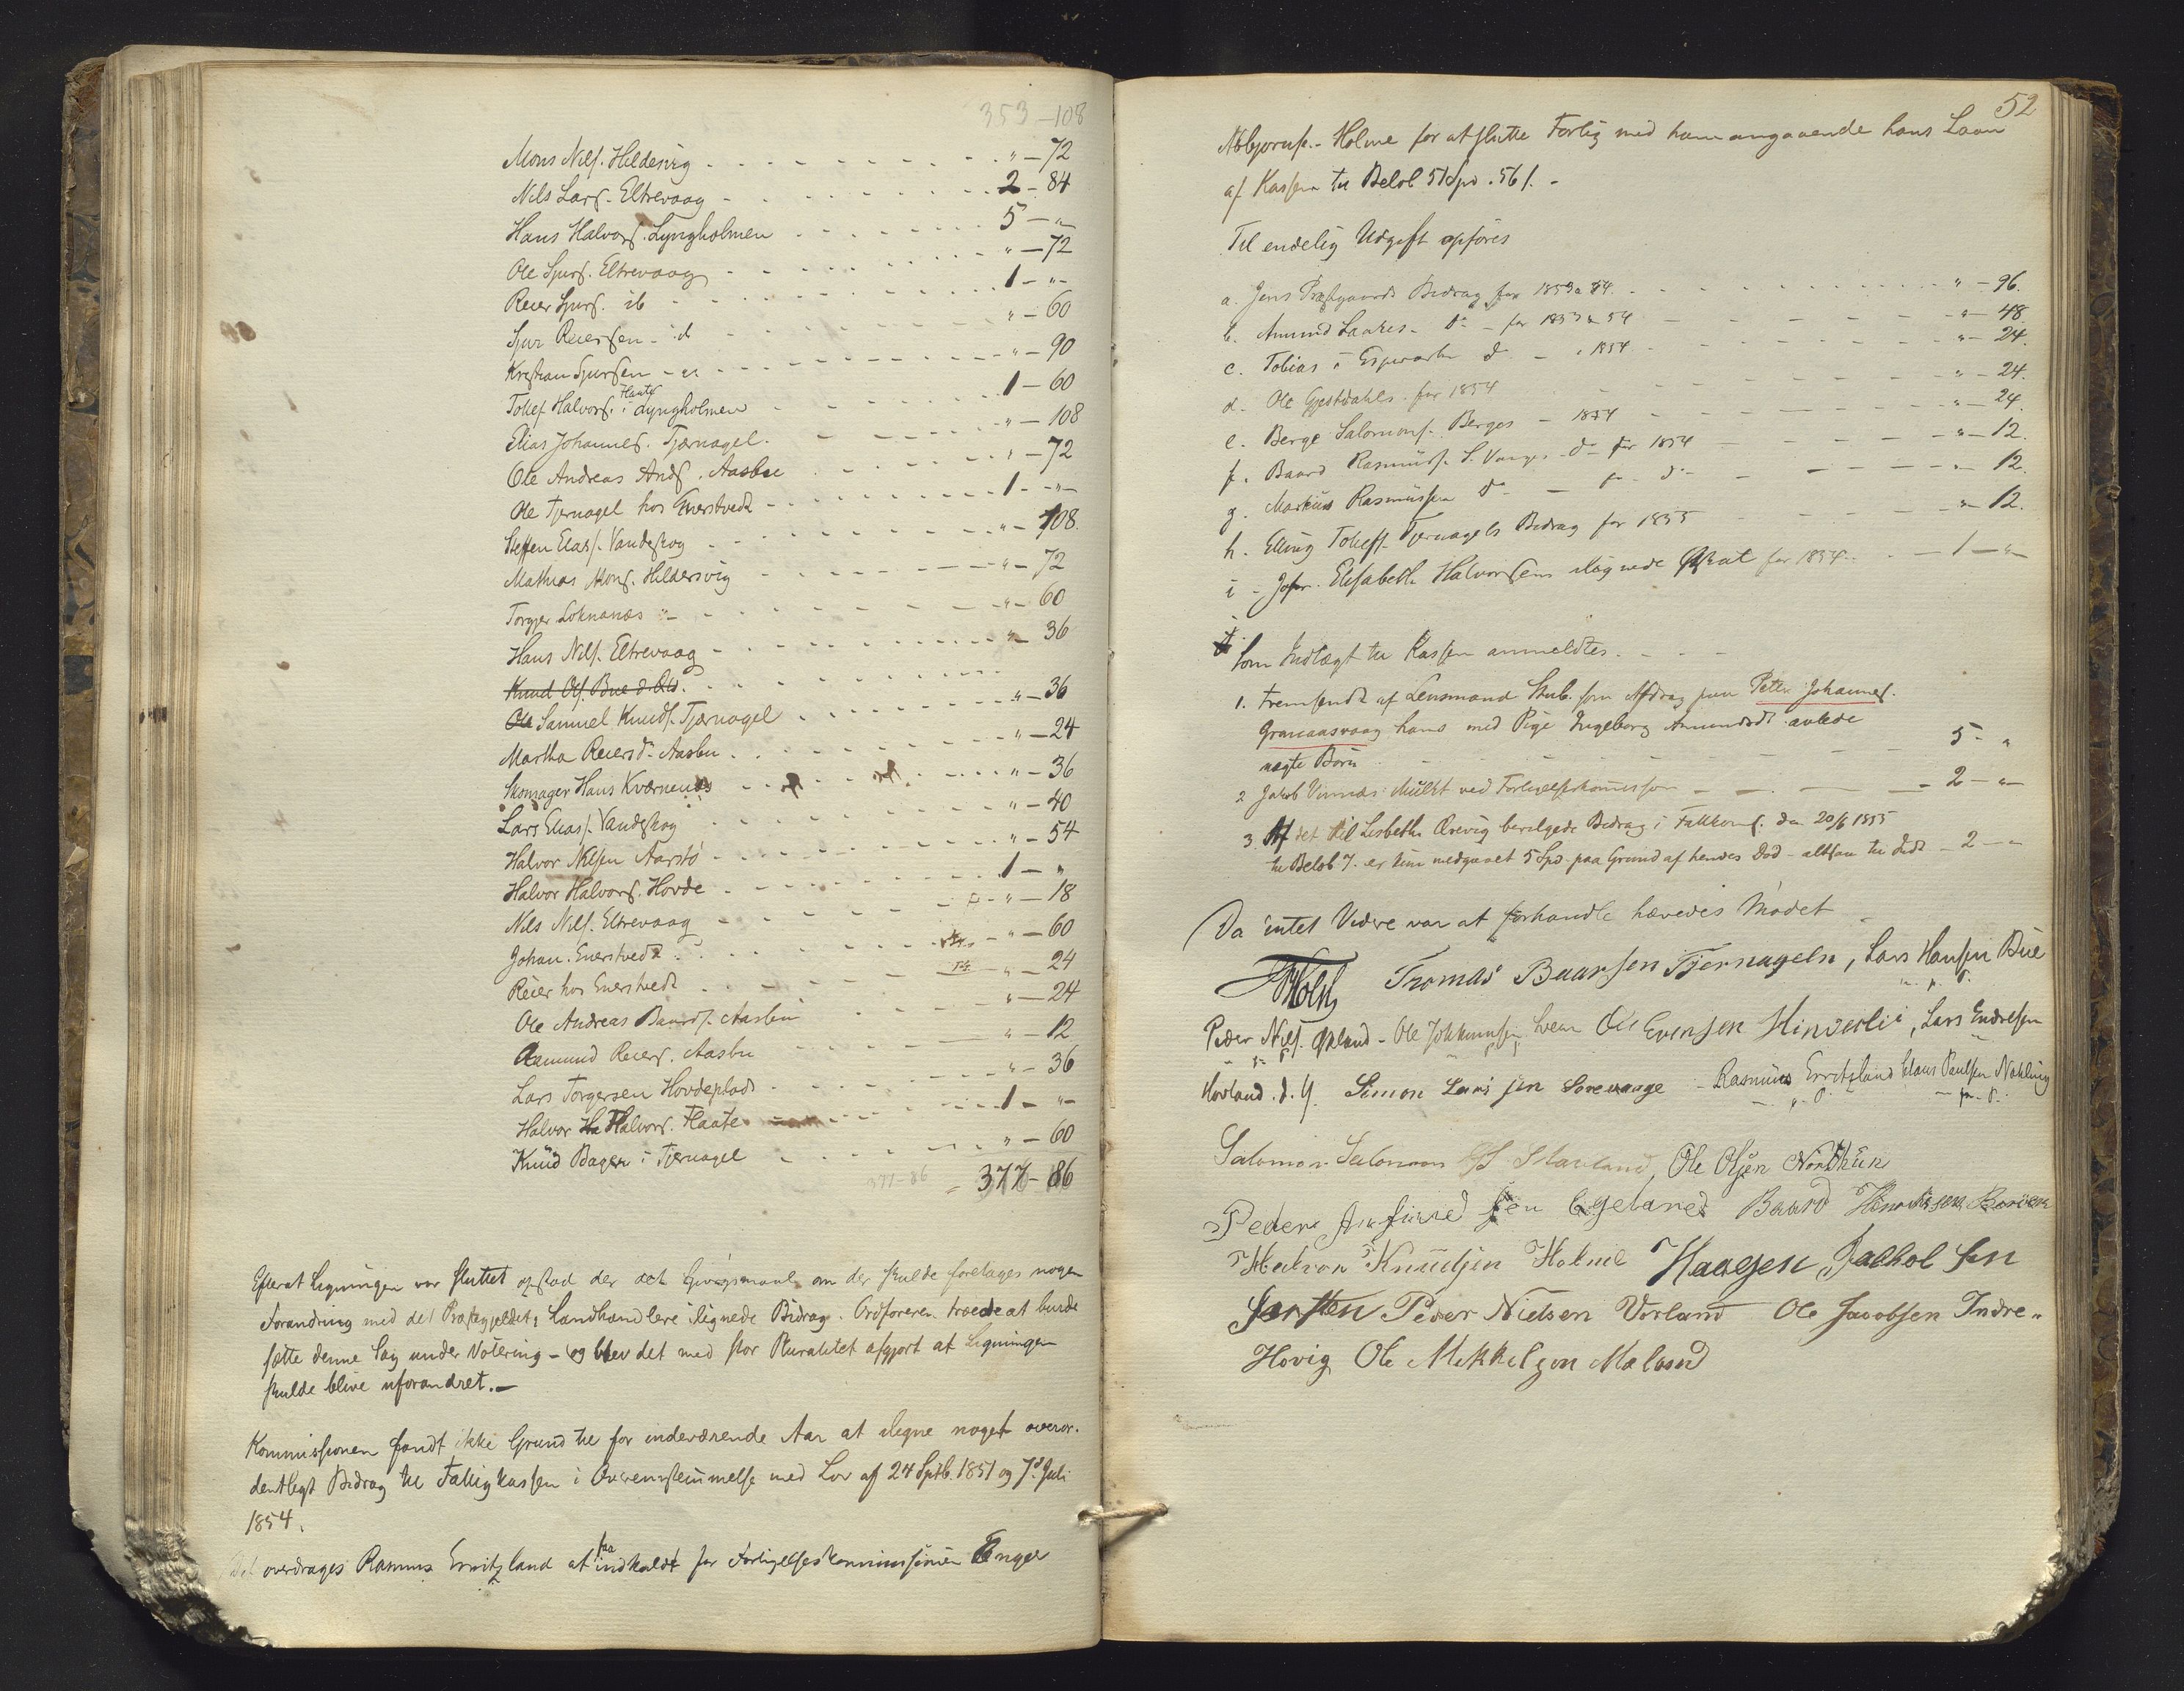 353-108
Mons Nils. Hildesvig - - - " - 72
Nils Lars. Eltrevaag - - - 2 - 84
Hans Halvors. Lyngholmen - - - 5 - "
Ole Sjurs. Eltrevaag - - - " - 72
Reier Sjurs. ib - - - 1 - " -
Sjur Reiersen - id - - - " - 60
Kristian Sjursen - - - " - 90
Tollef Halvors. i Flaate Lyngholmen - - - 1 - 60
Elias Johannes. Tjernagel - - - " - 108
Ole Andreas Ands. Aasbue - - - " - 72
Ole Tjernagel hos Enerstvedt - - - 1 - " -
Steffen Elias. Vandskog - - - " - 108
Mathias Mons. Hildersvig - - - " - 72
Torger Loknanæs - - - " - 60
Hans Nils. Eltrevaag - - - " - 36
Knud Ols. Bue d. Old.
Ole Samuel Knuds. Tjernagel - - - " - 36
Martha Reiersd. Aasbu - - - " - 24
Skomager Hans Kværnenæs - - - " - 36
Lars Elias. Vandskog - - - " - 40
Halvor Nilsen Aarstø - - - " - 54
Halvor Halvors. Hovde - - - 1 - "
Nils Nils. Eltrevaag - - - " - 18
Johan. Enerstvedt - - - " - 60
Reier hos Enerstvedt - - - " - 24
Ole Andreas Baards. Aasbu - - - " - 24
Aamund Reiers. Aasbu - - - " - 12
Lars Torgersen Hovdeplads - - - " - 36
Halvor Ha Halvors. Flaate - - - 1 - " -
Knud Bager i Tjernagel - - - " - 60
377-86 = 377 - 86
Efterat Ligningen var sluttet opstod der det Spørgsmaal om der skulde foretages nogen
Forandring med det Præstegjeldets Landhandlere ilignede Bidrag. Ordføreren troede at burde
sætte denne Sag under Votering - og blev det med stor Pluralitet afgjort at Ligningen
skulde blive uforandret. -
Kommissionen fandt ikke Grund til for indeværende Aar at iligne noget overor-
dentligt Bidrag til Fattigkassen i Overensstemmelse med Lov af 24 Septb. 1851 og 7d Juli
1854.
Det overdrages Rasmus Ervitzland at faa indkaldt for Forligelseskommissionen
52
Asbjørns. Holme for at slutte Forlig med ham angaaende hans Laan
af Kassen til Beløb 51 Spd. 56 s. -
Til endelig Udgift opføres
a. Jens Præstgaards Bidrag for 1853 & 54 - - - " - 96.
b. Amund Laakes - do - for 1853 & 54 - - - " - 48
c. Tobias i Espevær do - " 1854 - - - " - 24.
d. Ole Gjestdahls for 1854 - - - " - 24.
e. Berge Salomons. Berges - 1854 - - - " - 24.
f. Baard Rasmuss. S. Vaages - do for 1854 - - - " - 12.
g. Markus Rasmussen do - for do - - - " - 12.
h. Elling Tollefs. Tjernagels Bidrag for 1855 - - - " - 12.
i - Jofr. Elisabeth Halvorsens ilignede Skat for 1854 - - - 1 - " -
Som Indtægt til Kassen anmeldtes - - -
1. Fremsendt af Lensmand Stub. som Afdrag paa Peter Johannes.
Granaasvaag hans med Pige Ingeborg Amundsd. avlede
uægte Børn - - - 5 - "
2 Jakob Vinnæs Mulkt ved Forligelseskommission - - - 2 - " -
3. Af det til Lisbeth Økrevig bevilgede Bidrag i Fattkoms. den 20/6 1855
til Beløb 7. er kun medgaaet 5 Spd. paa Grund af hendes Død - altsaa til Indt - 2 - "
Da intet Videre var at forhandle hævedes Mødet
Holst Tromas Baarsen Tjernageln, Lars Hansen Bue
Peder Nils. Økland - Ole Johannesen Ole Evensen Hinderlie, Lars Endresen
Hovland. d. y. Simon Larssen Sørevaage - Rasmus Ervitzland Claus Paulsen Nækling
Salomon Salomons Stavland, Ole Olsen Nordhuus
Peder Egeland Baard Henriksen
Halvor Knudsen Holme Haagen Jachobsen
Peder Nielsen Vorland Ole Jacobsen Indre-
Hovig Ole Mikkelsen Mæland